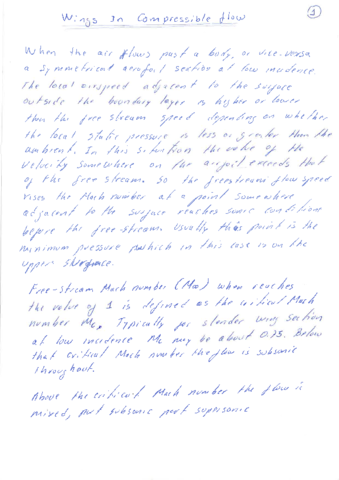 Wings In Compressible flow
1
When the air flows past a body, or vice-versa
a symmetrical aerofoil section at low incidence
the local airspeed adjacent to the surface
outside the boundary layer is higher or lower
than the free stream speed depending on whether
the local static pressure is less or greater than the
ambient. In this situation the value of the
velocity somewhere on the airfoil exceeds that
of the free stream. So the freestream flow speed
rises the Mach number at a point somewhere
adjacent to the surface reaches sonic conditions
before the free-stream. Usually this point is the
minimum pressure which in this case is on the
upper surface.
Free-stream Mach number (M∞) when reaches
the value of 1 is defined as the critical Mach
number Mc. Typically for slender wing section
at low incidence Mc may be about 0.75. Below
that critical Mach number the flow is subsonic
throughout.
Above the critical Mach number the flow is
mixed, part subsonic part supersonic